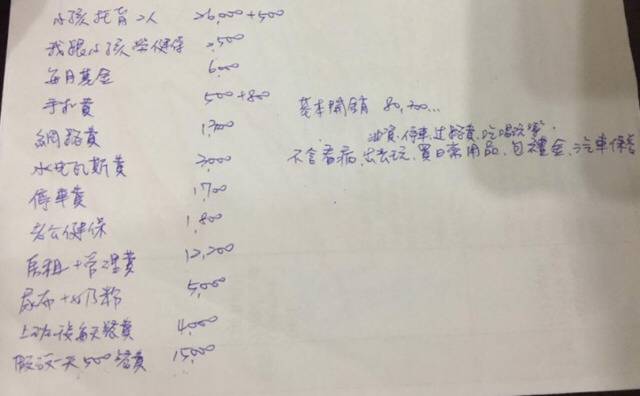 小孩托育2人 26,000+500
我跟小孩勞健保 2,500
每月基金 6,000
手机費 500+800
網路費 1,300
水电瓦斯費 3,000
停車費 1,700
老公健保 1,800
房租+管理費 12,200
尿布+奶粉 5,000
上班後每天餐費 4,000
假設一天500餐費 15,000
基本開銷 80,200...
油資、停車、过路費、吃喝玩樂
不含看病、出去玩、買日常用品、包禮金、汽車保養